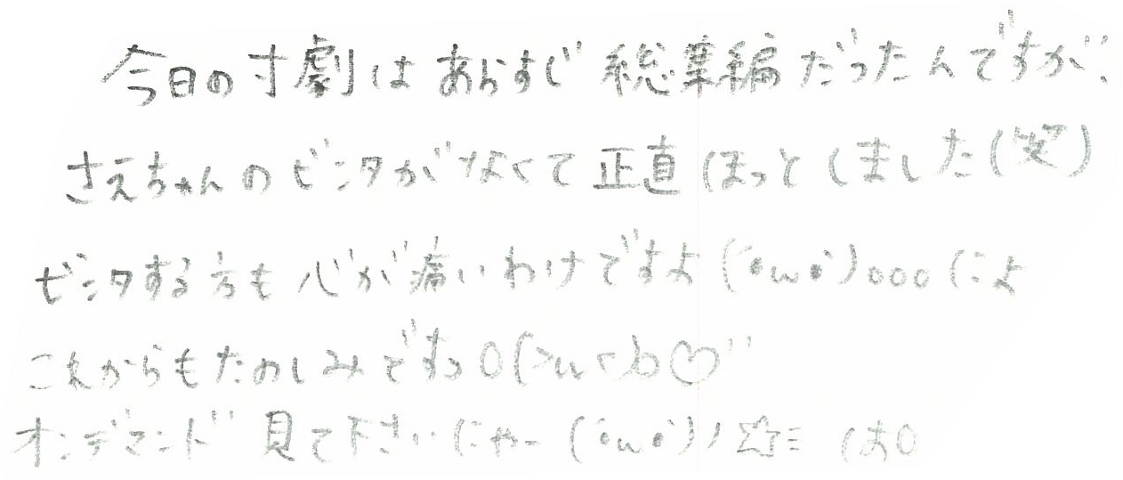 今日の寸劇はあらすじ総集編だったんですが、
さえちゃんのビンタがなくて正直ほっとしました(笑)
ビンタする方も心が痛いわけですよ(´•ω•`)ooo(によ
これからもたのしみですっo(>ω<)o♡"
オンデマンド見て下さいにゃー(´•ω•`)ﾉ☆ミ